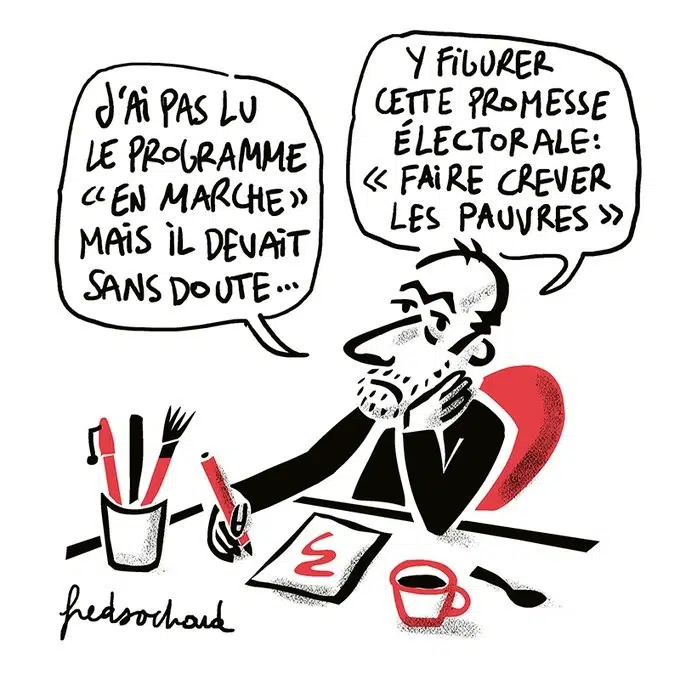 J'Ai PAS LU
LE PROGRAMME
« EN MARCHE »
MAiS iL DEVAiT
SANS DOUTE...
Y FiGURER
CETTE PROMESSE
ÉLECTORALE :
« FAiRE CREVER
LES PAUVRES »
fredsochard